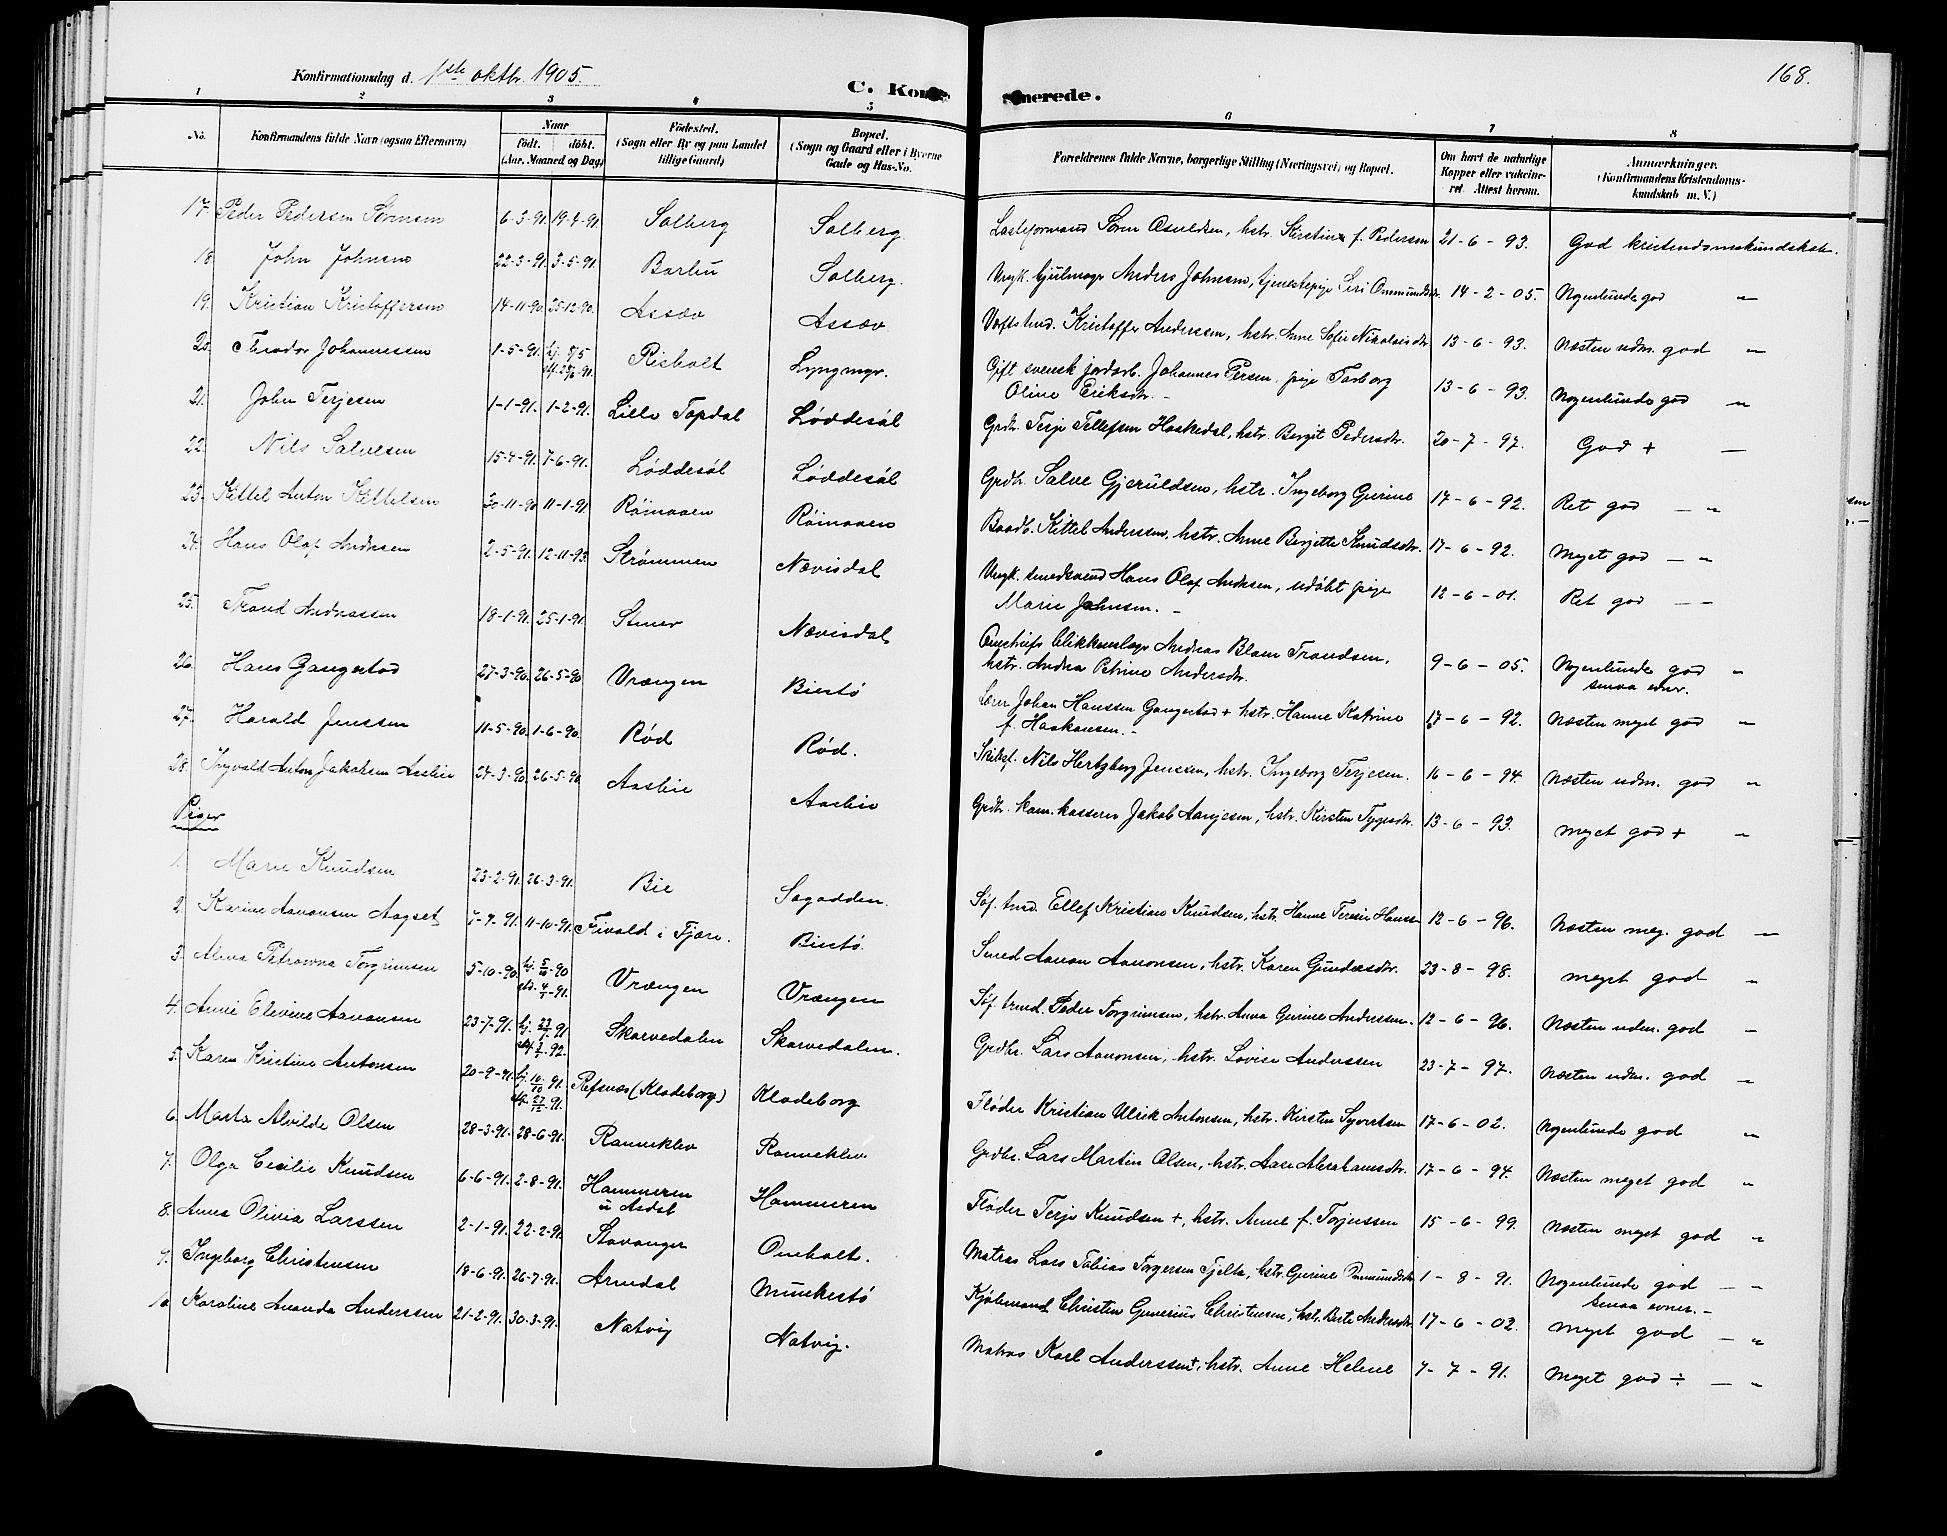 Konfirmationsdag d. 1ste oktbr. 1905.
C. Kon
merede.
168.
1 2 3 4 5 6 7 8
No.
Konfirmandens fulde Navn (ogsaa Efternavn)
Naar
födt. döbt.
(Aar, Maaned og Dag)
Födested.
(Sogn eller By og paa Landet
tillige Gaard)
Bopæl.
(Sogn og Gaard eller i Byerne
Gade og Hus-No.
Forældrenes fulde Navne, borgerlige Stilling (Næringsvei) og Bopæl.
Om havt de naturlige
Kopper eller vaccine-
ret. Attest herom.
Anmærkninger.
(Konfirmandens Kristendoms-
kundskab m. V.)
17. Peder Pedersen Sørensen 6-3-91. 19-4-91. Solberg Solberg. Lasteformand Søren Osuldsen, hstr. Kirstine f. Pedersen 21-6-93. God kristendomskundskab.
18 John Johnsen 22-3-91. 3-5-91. Barbu Solberg. Ungk. hjulmager Anders Johnsen, tjenestepige Siri Ommundsdtr. 14-2-05. Nogenlunde god "
19. Kristian Kristoffersen 14-11-90. 25-12-90. Assæv Assæv Værftstmd. Kristoffer Anderssen, hstr. Anne Sofie Nikolaisdtr. 13-6-93. Næsten udm. god "
20. Theodor Johannessen 1-5-91. hj. 8/5 st. 28/6-91. Risholt Lyngmyr. Gift svensk jordarb. Johannes Persen, pige Tarborg
Oline Eriksdtr. 13-6-93. Nogenlunde god "
21. John Terjesen 1-1-91. 1-2-91. Lille Topdal Løddesøl Grdbr. Terje Tellefsen Haskedal, hstr. Bergit Pedersdtr. 20-7-97. God + —
22. Nils Salvesen 15-4-91. 7-6-91. Løddesøl Løddesøl Grdbr. Salve Gjeruldsen, hstr. Ingeborg Gurine 17-6-92. Ret god — "
23. Kittel Anton Kittelsen 30-11-90 11-1-91 Røinaaen Røinaaen Baadb. Kittel Anderssen, hstr. Anne Birgitte Knudsdtr. 17-6-92. Meget god — "
24. Hans Olaf Andersen 2-5-91. 12-11-93. Strømmen Nævisdal Ungk. smedsvend Hans Olaf Andersen, udøbt pige
Marie Johnsen. 12-6-01. Ret god — —
25. Trond Andreassen 18-1-91. 25-1-91. Stener Nævisdal blikkenslager Andreas Blom Trondsen,
hstr. Andrea Petrine Andersdtr. 9-6-05. Nogenlunde god "
smaa evner.
26. Hans Gangestad 27-3-90. 26-5-90 Vrængen Biestø Lærer Johan Hanssen Gangestad + hstr. Hanne Katrine
f. Haakonsen. 17-6-92. Næsten meget god "
27. Harald Jenssen 11-5-90. 1-6-90. Rød Rød. Skibsf. Nils Hertzberg Jenssen, hstr. Ingeborg Terjesen. 16-6-94. Næsten udm. god "
28. Ingvald Anton Jakobsen Aasbie 24-3-90. 26-5-90. Aasbie Aasbie Grdbr. kom. kasserer Jakob Aanjesen, hstr. Kirsten Tygesdtr. 13-6-93. meget god + "
Piger
1. Marie Knudsen 23-2-91. 26-3-91. Bie Sagodden. Søf. tmd. Ellef Kristian Knudsen, hstr. Hanne Teresie Hanss 12-6-96. Næsten meg. god —
2. Karine Aanonsen Aagset 7-9-91. 11-10-91. Fivold i Fjære. Biestø. Smed Aanon Aanonsen, hstr. Karen Gundersdtr. 23-8-98. meget god "
3. Alma Petrowna Torgrimsen 5-10-90. hj. 5/10-90 st. 4/1-91. Vrængen Vrængen Søf. tmd. Peder Torgrimsen, hstr. Anna Gurine Anderssen. 12-6-96. Næsten udm. god —
4. Anni Elevine Aanonsen 23-7-91. 91 92. Skarvedalen Skarvedalen. Grdbr. Lars Aanonsen, hstr. Lovise Anderssen 23-7-97. Næsten udm. god "
5. Karen Kristine Antonsen 20-9-91. hj. 10/10 91. st. 27/12-91. Refsnæs (Klodeborg) Klodeborg Fløder Kristian Ulrik Antonsen, hstr. Kirsten Syvertsen 17-6-02. Nogenlunde god "
6. Marta Alvilde Olsen 28-3-91. 28-6-91. Ranneklev Ranneklev Grdbr. Lars Martin Olsen, hstr. Aase Abrahamsdtr. 17-6-94. Næsten meget god "
7. Olga Cecilie Knudsen 6-6-91. 2-8-91. Hammeren
u Asdal Hammeren Fløder Terje Knudsen +, hstr. Anne f. Terjessen 15-6-99. Næsten meget god "
8. Anna Olivia Larssen 2-1-91. 22-2-91. Stavanger Omholt. Matros Lars Tobias Torgersen Tjelta, hstr. Gurine Ommundsdtr 1-8-91. Nogenlunde god — —
smaa evner. —
9. Ingeborg Christensen 18-6-91. 26-7-91. Arendal Munkestø Kjøbmand Christen Gunerius Christensen, hstr. Berte Andersdtr 17-6-02. meget god — "
10. Karoline Amanda Anderssen 21-2-91. 30-3-91. Natvig Natvig. Matros Karl Anderssen +, hstr. Anne Helene 7-7-91. Meget god ÷ — "